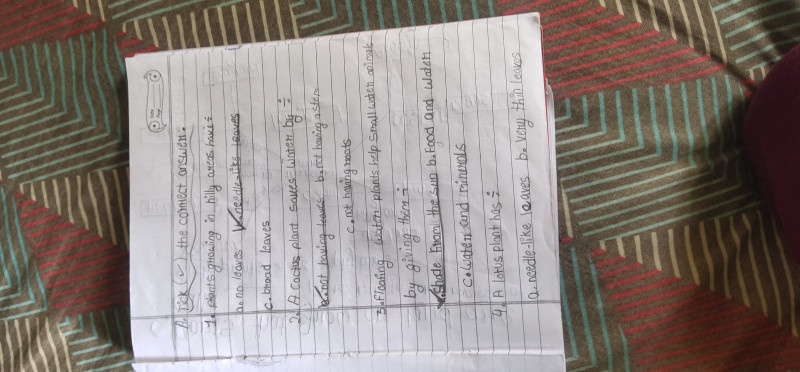 A. Tick (✓) the correct answer.
1. Plants growing in hilly areas have :-
a. no leaves b. needle-like leaves
c. broad leaves
2. A Cactus plant saves water by :-
a. not having leaves b. not having a stem
c. not having roots
3. Floating water plants help small water animals
by giving them :-
a. Shade from the sun b. Food and Water
c. Water and minerals
4. A lotus plant has :-
a. needle-like leaves b. Very thin leaves